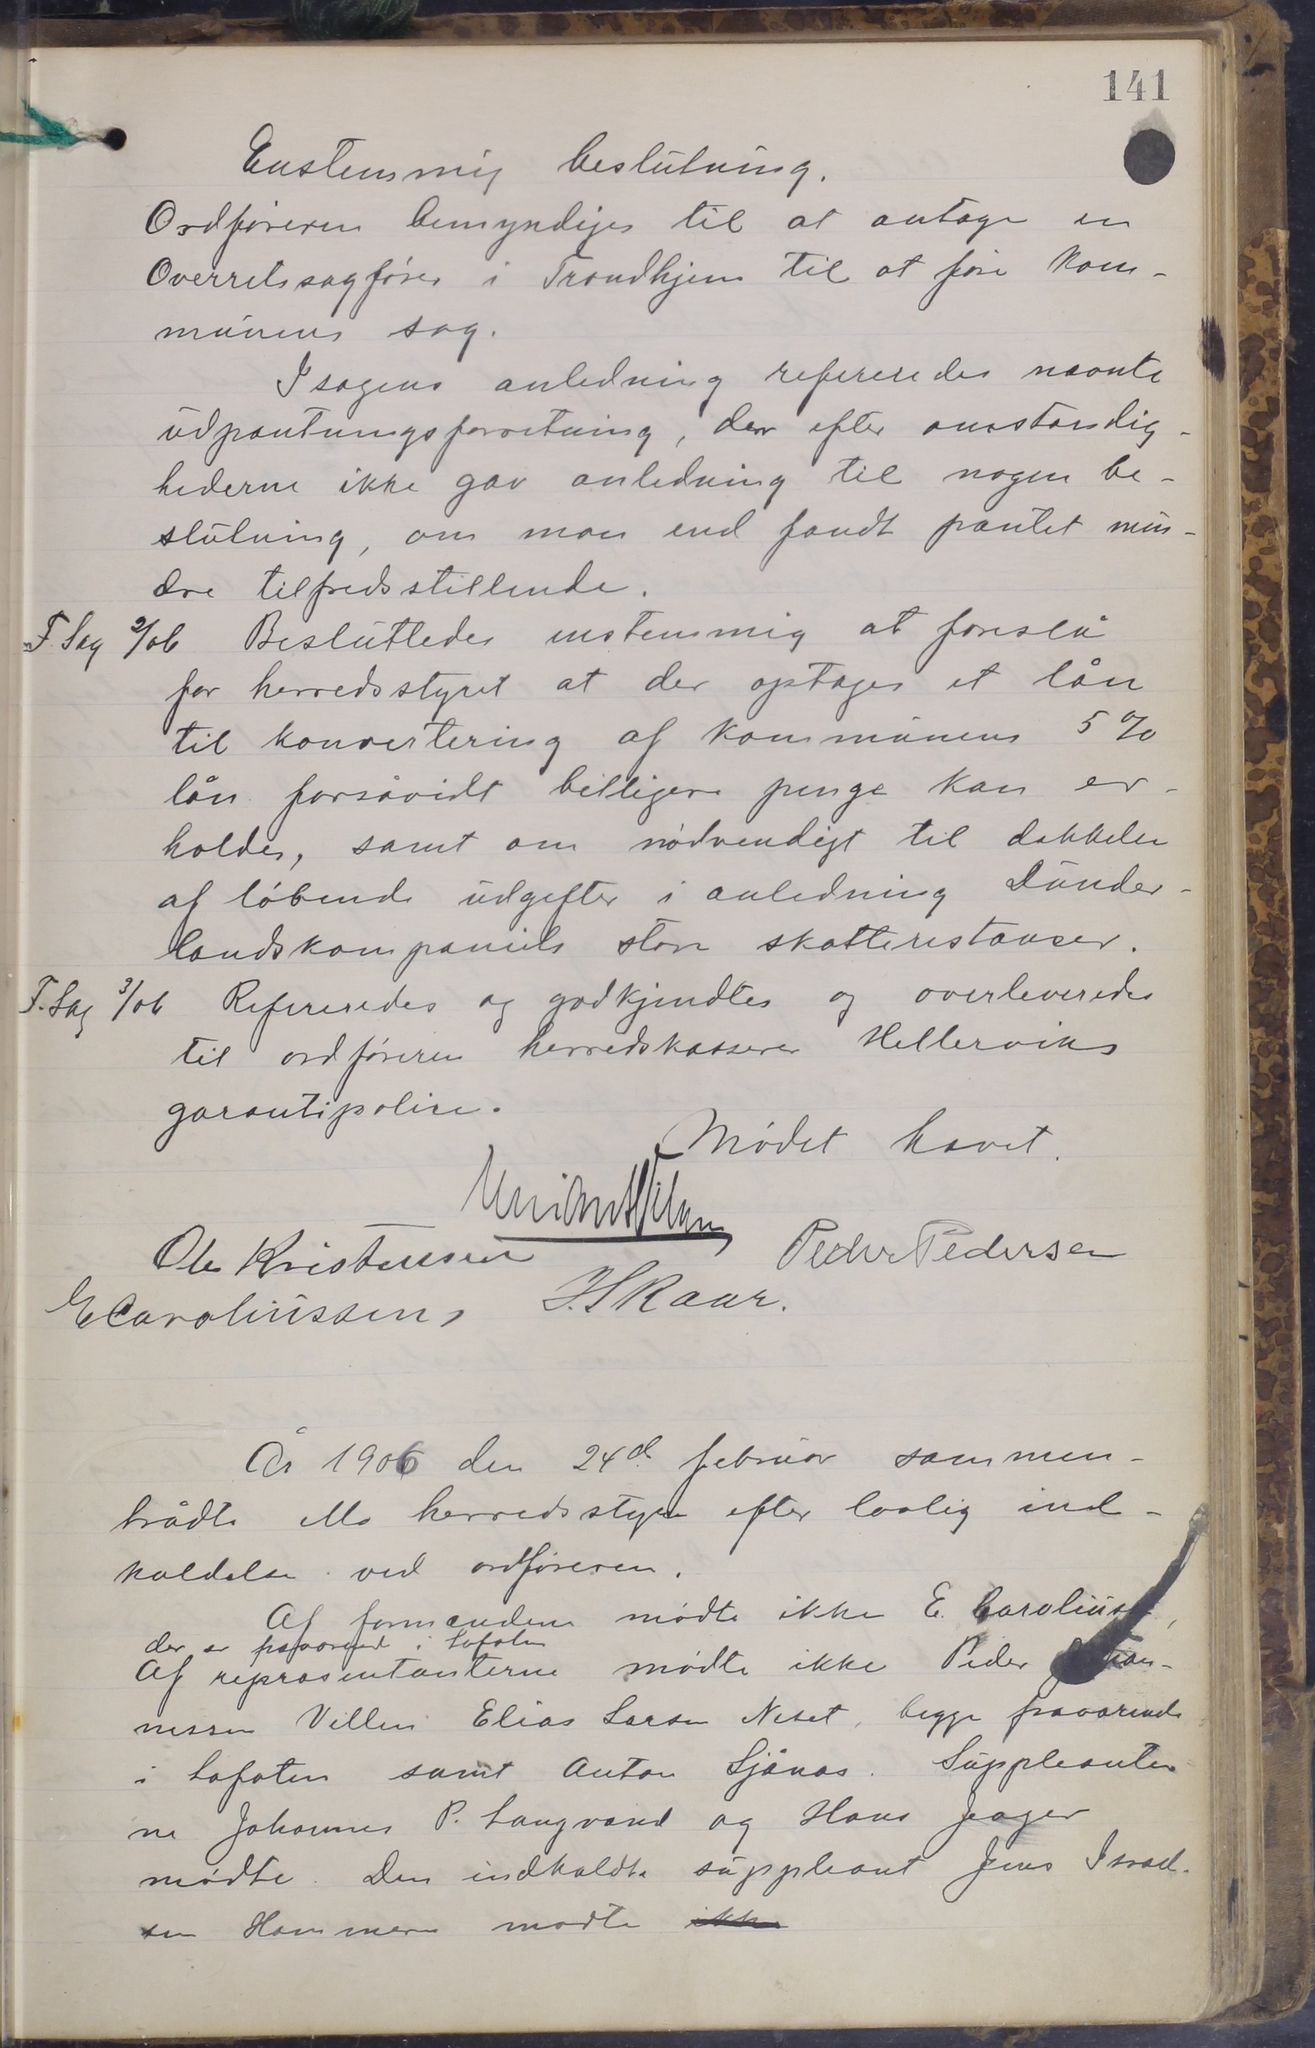 141
Enstemmig beslutning.
Ordføreren bemyndiges til at antage en
Overretssagfører i Trondhjem til at føre kom-
munens sag.
I sagens anledning refereredes nævnte
udpantningsforretning, der efter omstændig-
hederne ikke gav anledning til nogen be-
slutning, om man end fandt pantet min-
dre tilfredsstillende.
F. Sag 2/06 Besluttedes enstemmig at foreslå
for herredsstyret at der optages et lån
til konvertering af kommunens 5 %
lån forsåvidt billigere penge kan er-
holdes, samt om nødvendigt til dækkelse
af løbende udgifter i anledning Dunder-
landskompaniets store skatterestanser.
F. Sag 3/06 Refereredes og godkjendtes og overleveredes
til ordføreren herredskasserer Hellerviks
garantipolise.
Mødet hævet.
Ole Kristensen Peder Pedersen
E Caroliussen, J. S Raar.
År 1906 den 24d februar sammen-
trådte Mo herredsstyre efter lovlig ind-
kaldelse ved ordføreren.
Af formændene mødte ikke E. Carolius
der er fraværende i Lofoten
Af repræsentanterne mødte ikke Peder
nessen Villen Elias Larsen Neset, begge fraværende
i Lofoten samt Anton Sjånæs. Suppleanter
ne Johannes P. Langvand og Hans Jeager
mødte. Den indkaldte suppleant Jens Israel-
sen Hammeren mødte ikke